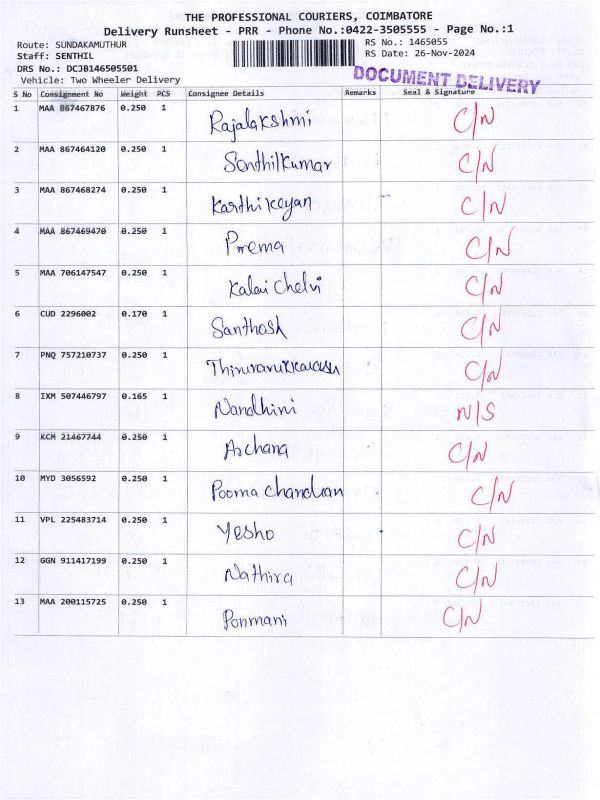 THE PROFESSIONAL COURIERS, COIMBATORE
Delivery Runsheet - PRR - Phone No.:0422-3505555 - Page No.:1
Route: SUNDAKAMUTHUR RS No.: 1465055
Staff: SENTHIL RS Date: 26-Nov-2024
DRS No.: DCJB146505501
Vehicle: Two Wheeler Delivery
DOCUMENT DELIVERY
S No Consignment No Weight PCS Consignee Details Remarks Seal & Signature
1 MAA 867467876 0.250 1 Rajalakshmi C/N
2 MAA 867464120 0.250 1 Senthilkumar C/N
3 MAA 867468274 0.250 1 Karthikeyan C/N
4 MAA 869469470 0.250 1 Prema C/N
5 MAA 706147547 0.250 1 Kalai Chelvi C/N
6 CUD 2296002 0.170 1 Santhosh C/N
7 PNQ 757210737 0.250 1 Thirunavukkarasu C/N
8 IXM 507446797 0.165 1 Nandhini N/S
9 KCM 21467744 0.250 1 Archana C/N
10 MYD 3056592 0.250 1 Poorna chandran C/N
11 VPL 225483714 0.250 1 Yesho C/N
12 GGN 911417199 0.250 1 Nathira C/N
13 MAA 200115725 0.250 1 Ponmani C/N